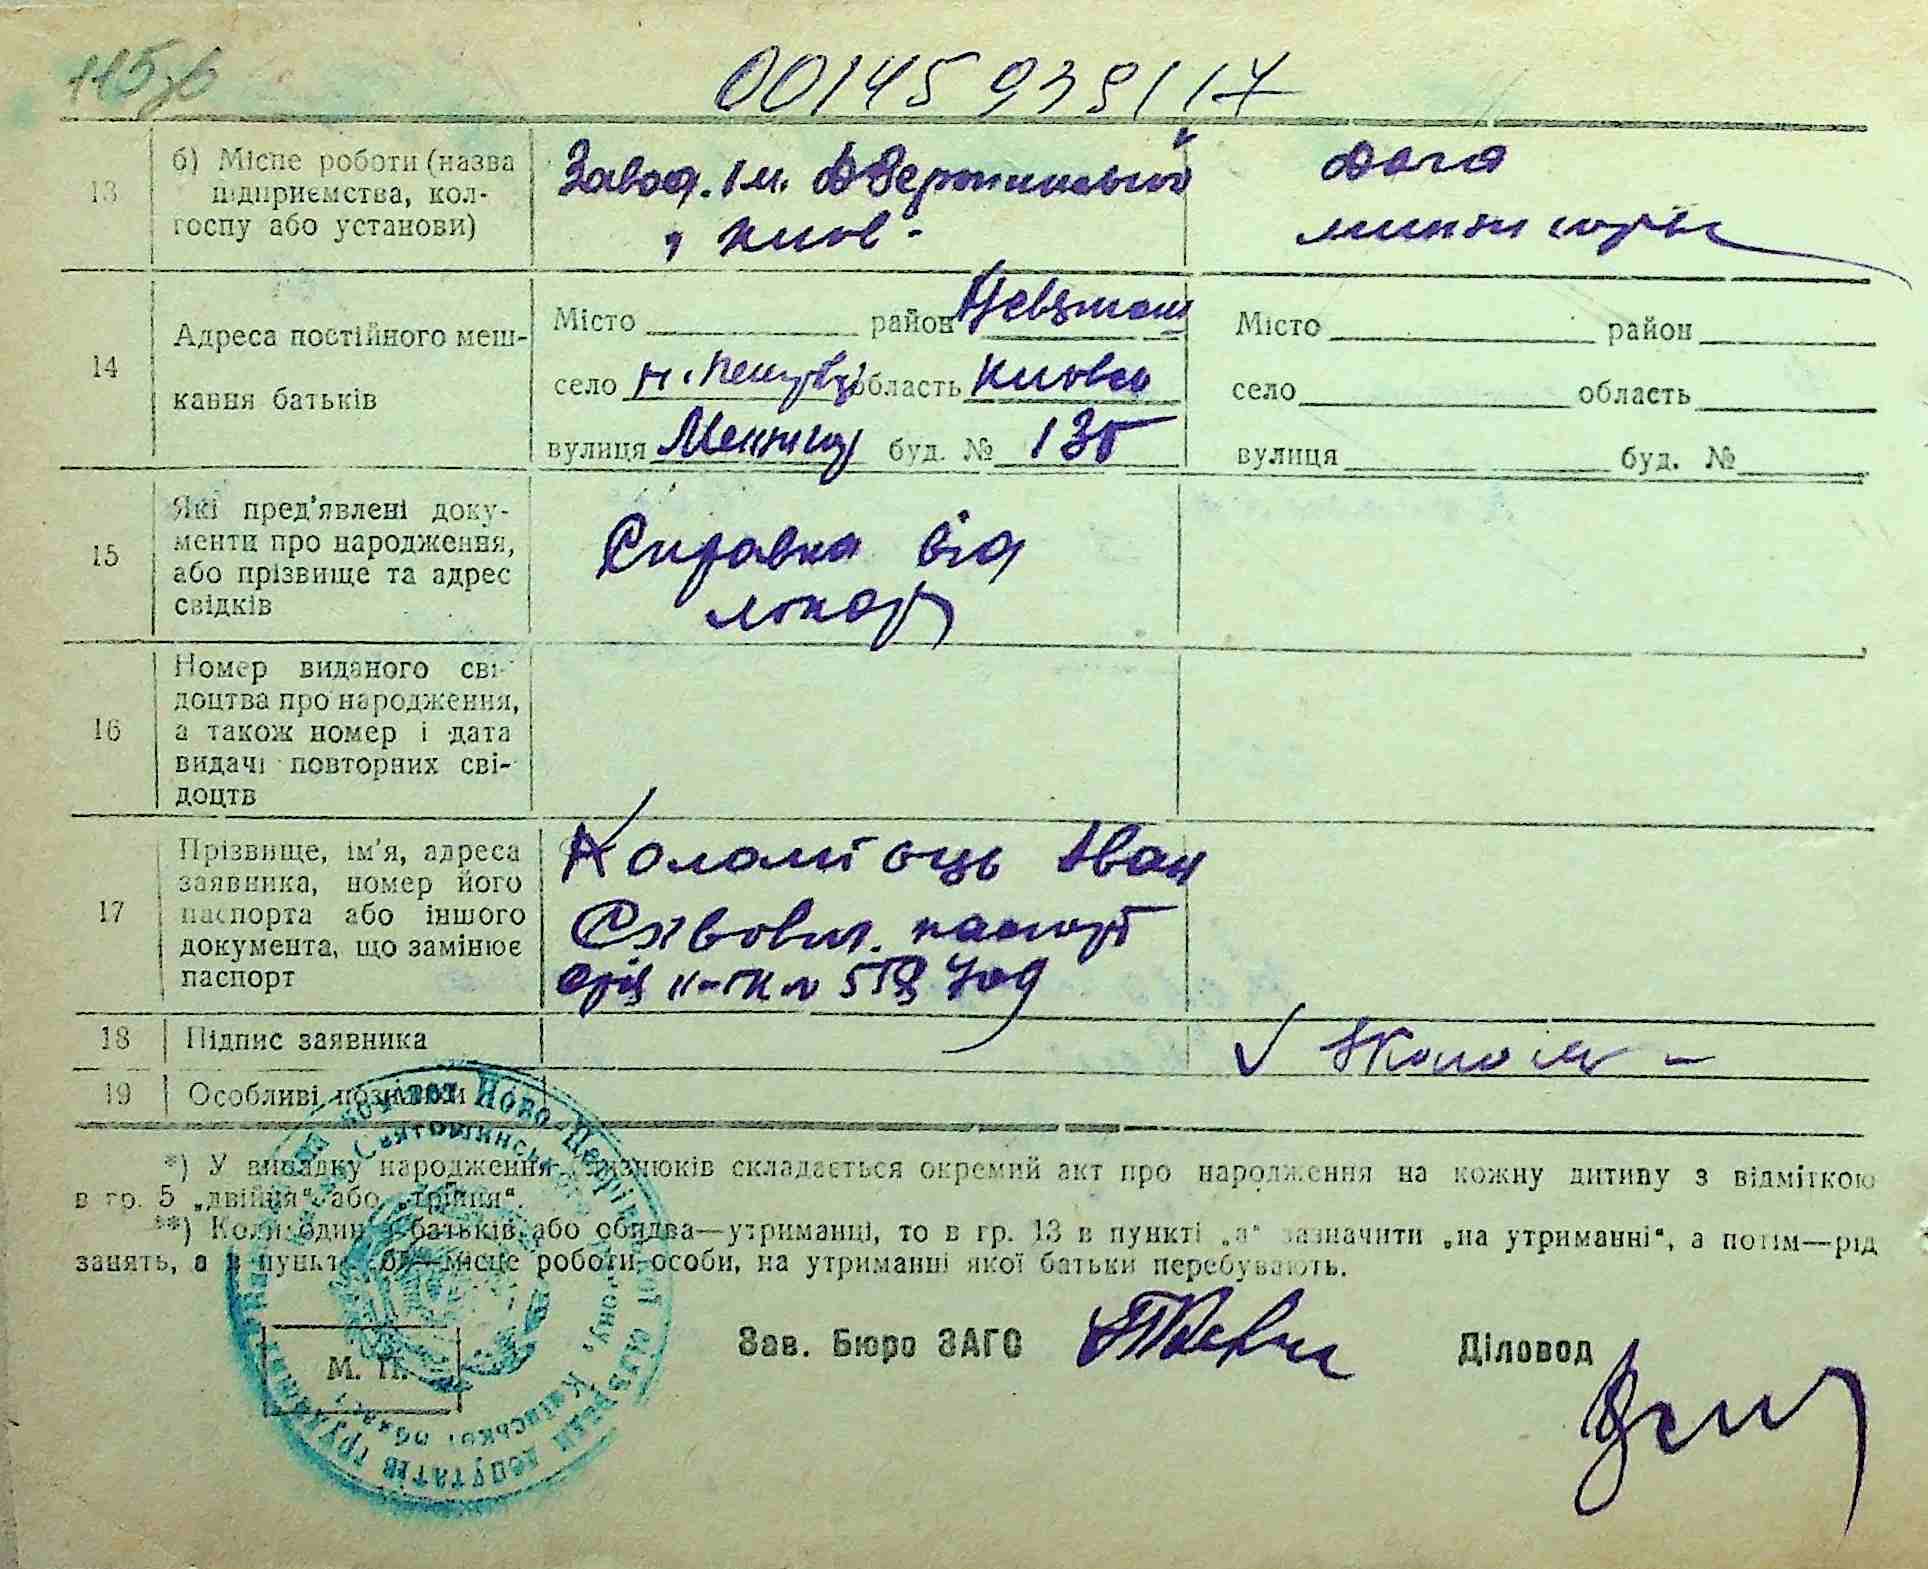 00145939117
13
б) Місце роботи (назва
підприємства, кол-
госпу або установи)
Завод. Ім. Дзержинського
Київ
14
Адреса постійного меш-
кання батьків
Місто район
село Н. Петрівці область Київськ
вулиця буд. № 135
Місто район
село область
вулиця буд. №
15
Які пред'явлені доку-
менти про народження,
або прізвище та адрес
свідків
Справка від
16
Номер виданого сві-
доцтва про народження,
а також номер і дата
видачі повторних сві-
доцтв
17
Прізвище, ім'я, адреса
заявника, номер його
паспорта або іншого
документа, що замінює
паспорт
Коломієць Іван
паспорт
18
Підпис заявника
19
Особливі познання
*) У випадку народження близнюків складається окремий акт про народження на кожну дитину з відміткою
в гр. 5 „двійня“ або „трійня“.
**) Коли один з батьків або обидва—утриманці, то в гр. 13 в пункті „а“ зазначити „на утриманні“, а потім—рід
занять, а в пункті „б“—місце роботи особи, на утриманні якої батьки перебувають.
Зав. Бюро ЗАГС
Діловод
М. П.
Ново-Петрівської сільради депутатів трудящих
Святошинського району, Київської області